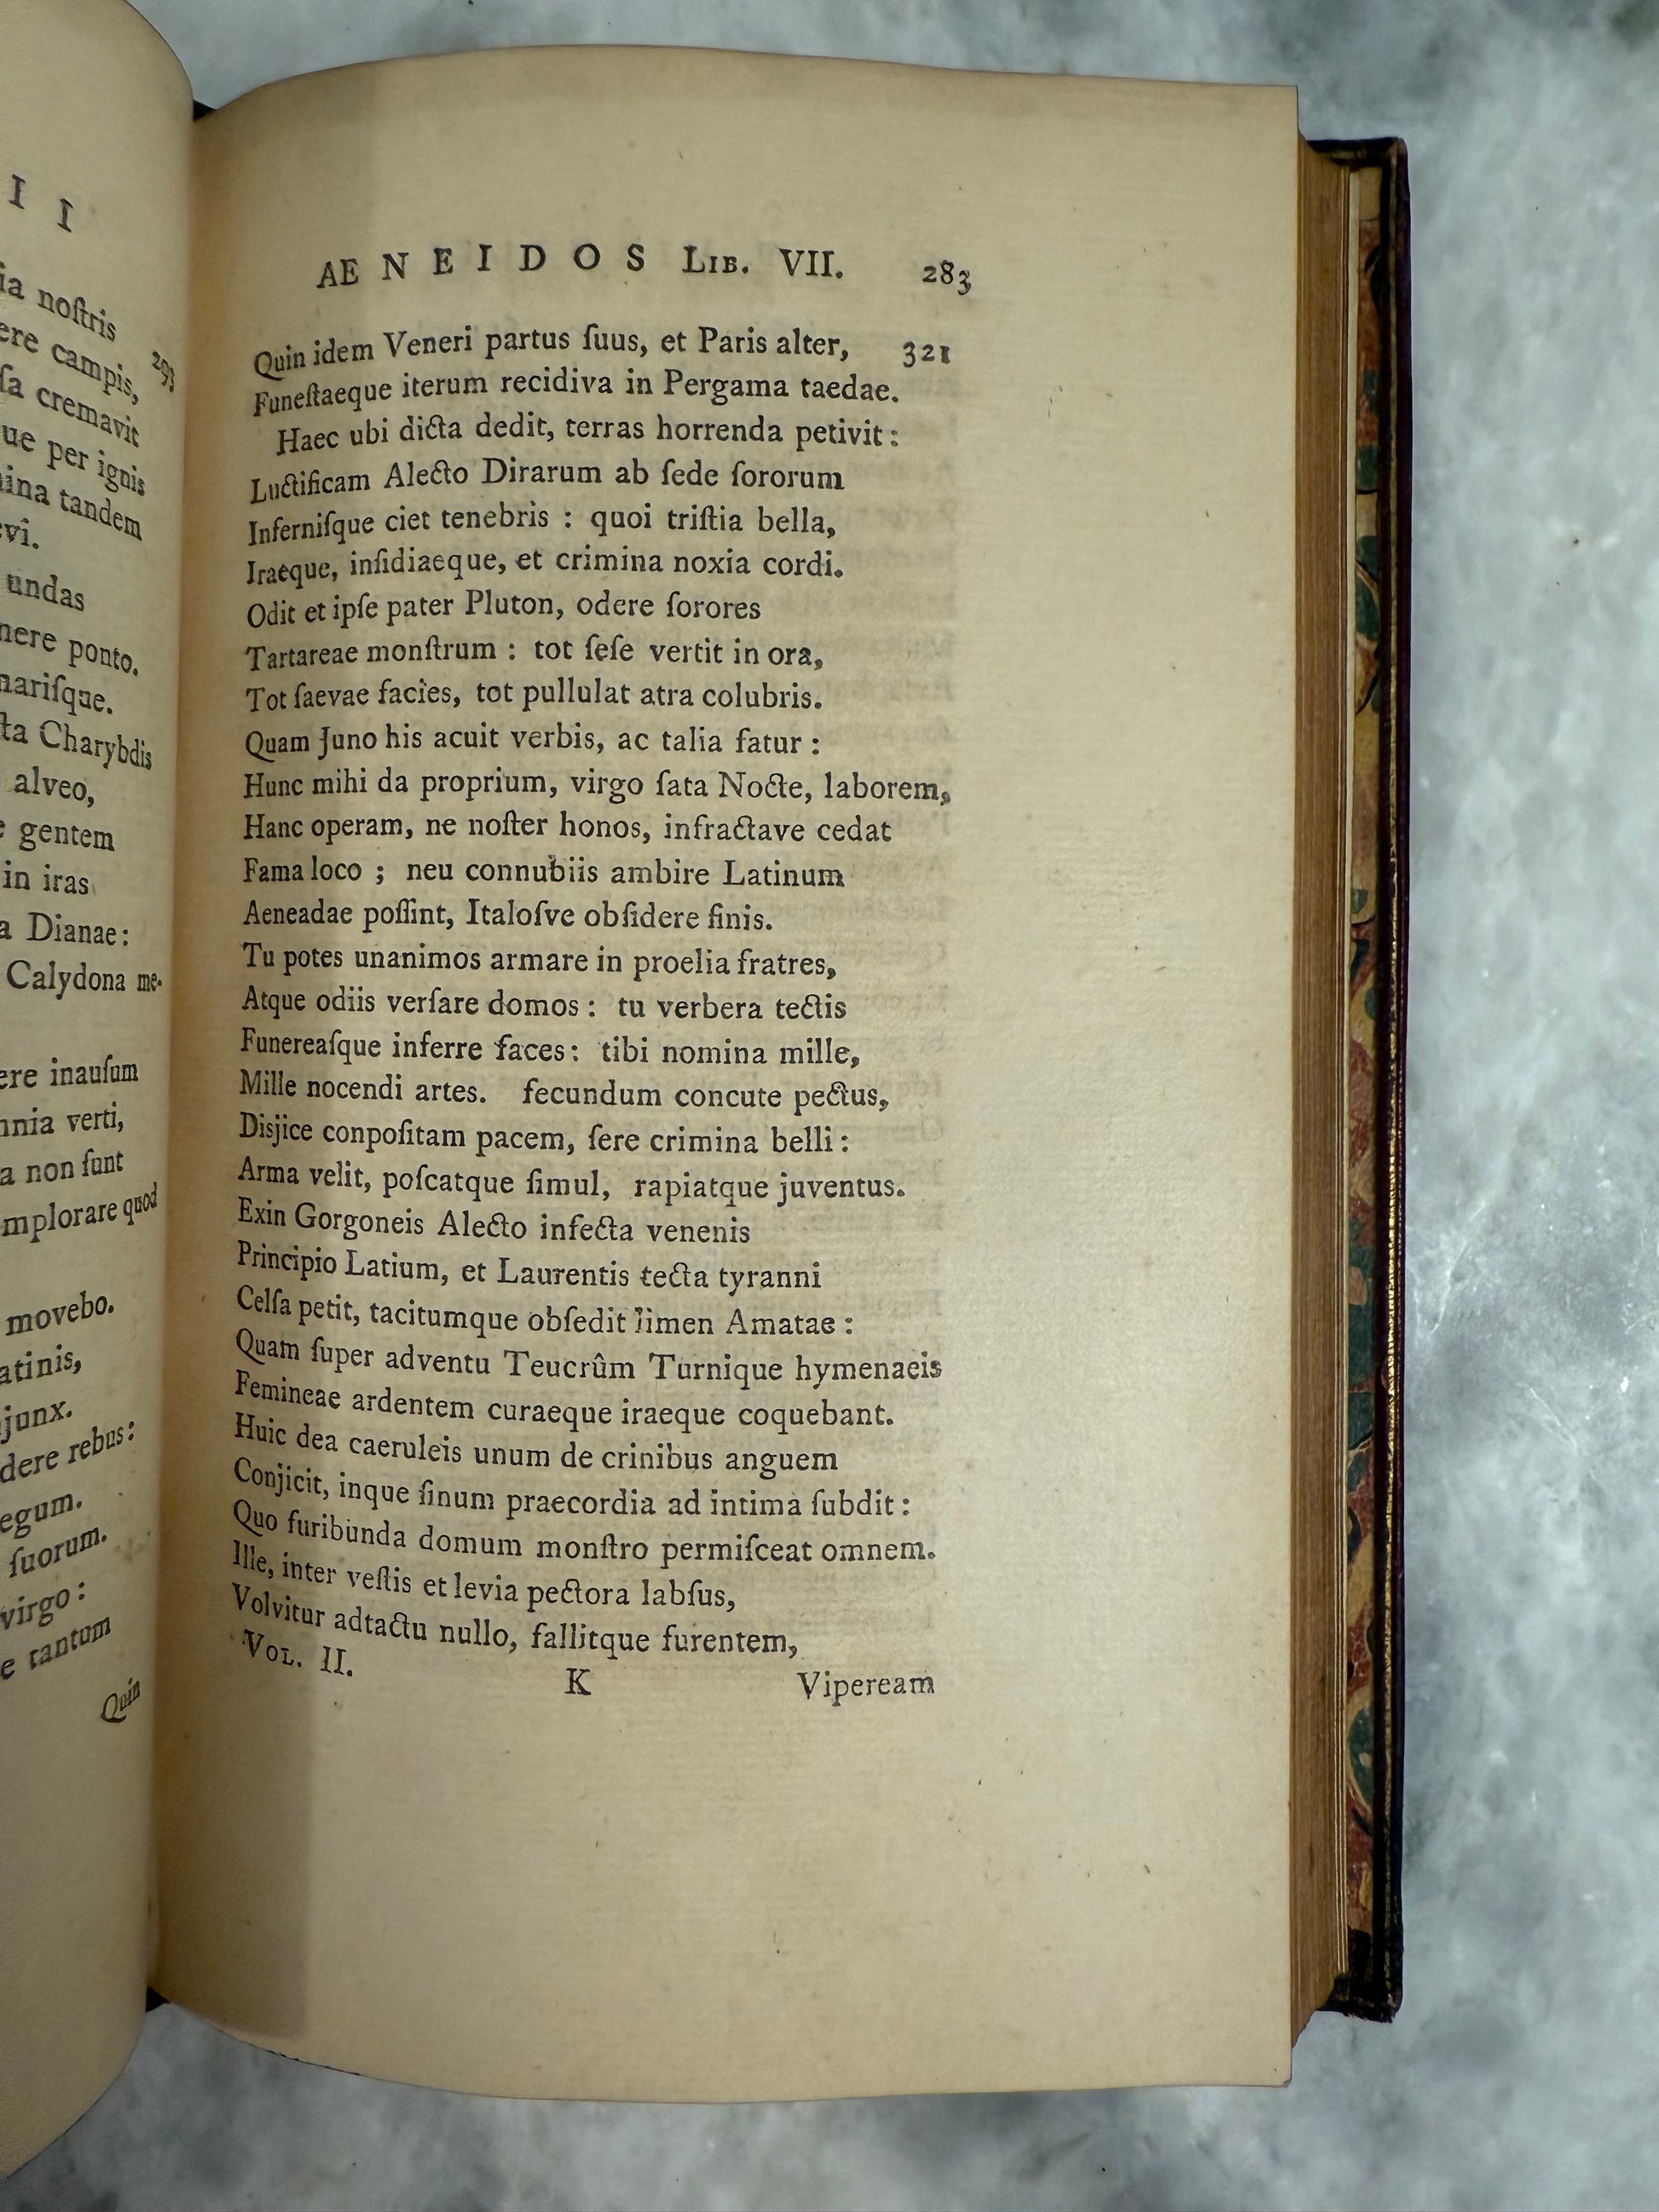 I I
noſtris
293
campis,
cremavit
per ignis
tandem
undas
ponto.
Charybdis
alveo,
gentem
in iras
Dianae:
Calydona me-
inauſum
verti,
non ſunt
quod
movebo.
rebus:
ſuorum.
virgo:
tantum
Quin
AENEIDOS LIB. VII. 283
Quin idem Veneri partus ſuus, et Paris alter, 321
Funeſtaeque iterum recidiva in Pergama taedae.
Haec ubi dicta dedit, terras horrenda petivit:
Luctificam Alecto Dirarum ab ſede ſororum
Inferniſque ciet tenebris : quoi triſtia bella,
Iraeque, inſidiaeque, et crimina noxia cordi.
Odit et ipſe pater Pluton, odere ſorores
Tartareae monſtrum : tot ſeſe vertit in ora,
Tot ſaevae facies, tot pullulat atra colubris.
Quam Juno his acuit verbis, ac talia fatur :
Hunc mihi da proprium, virgo ſata Nocte, laborem,
Hanc operam, ne noſter honos, infractave cedat
Fama loco ; neu connubiis ambire Latinum
Aeneadae poſſint, Italoſve obſidere finis.
Tu potes unanimos armare in proelia fratres,
Atque odiis verſare domos : tu verbera tectis
Funereaſque inferre faces: tibi nomina mille,
Mille nocendi artes. fecundum concute pectus,
Disjice conpoſitam pacem, ſere crimina belli :
Arma velit, poſcatque ſimul, rapiatque juventus.
Exin Gorgoneis Alecto infecta venenis
Principio Latium, et Laurentis tecta tyranni
Celſa petit, tacitumque obſedit limen Amatae :
Quam ſuper adventu Teucrûm Turnique hymenaeis
Femineae ardentem curaeque iraeque coquebant.
Huic dea caeruleis unum de crinibus anguem
Conjicit, inque ſinum praecordia ad intima ſubdit :
Quo furibunda domum monſtro permiſceat omnem.
Ille, inter veſtis et levia pectora labſus,
Volvitur adtactu nullo, fallitque furentem,
VOL. II. K Vipeream